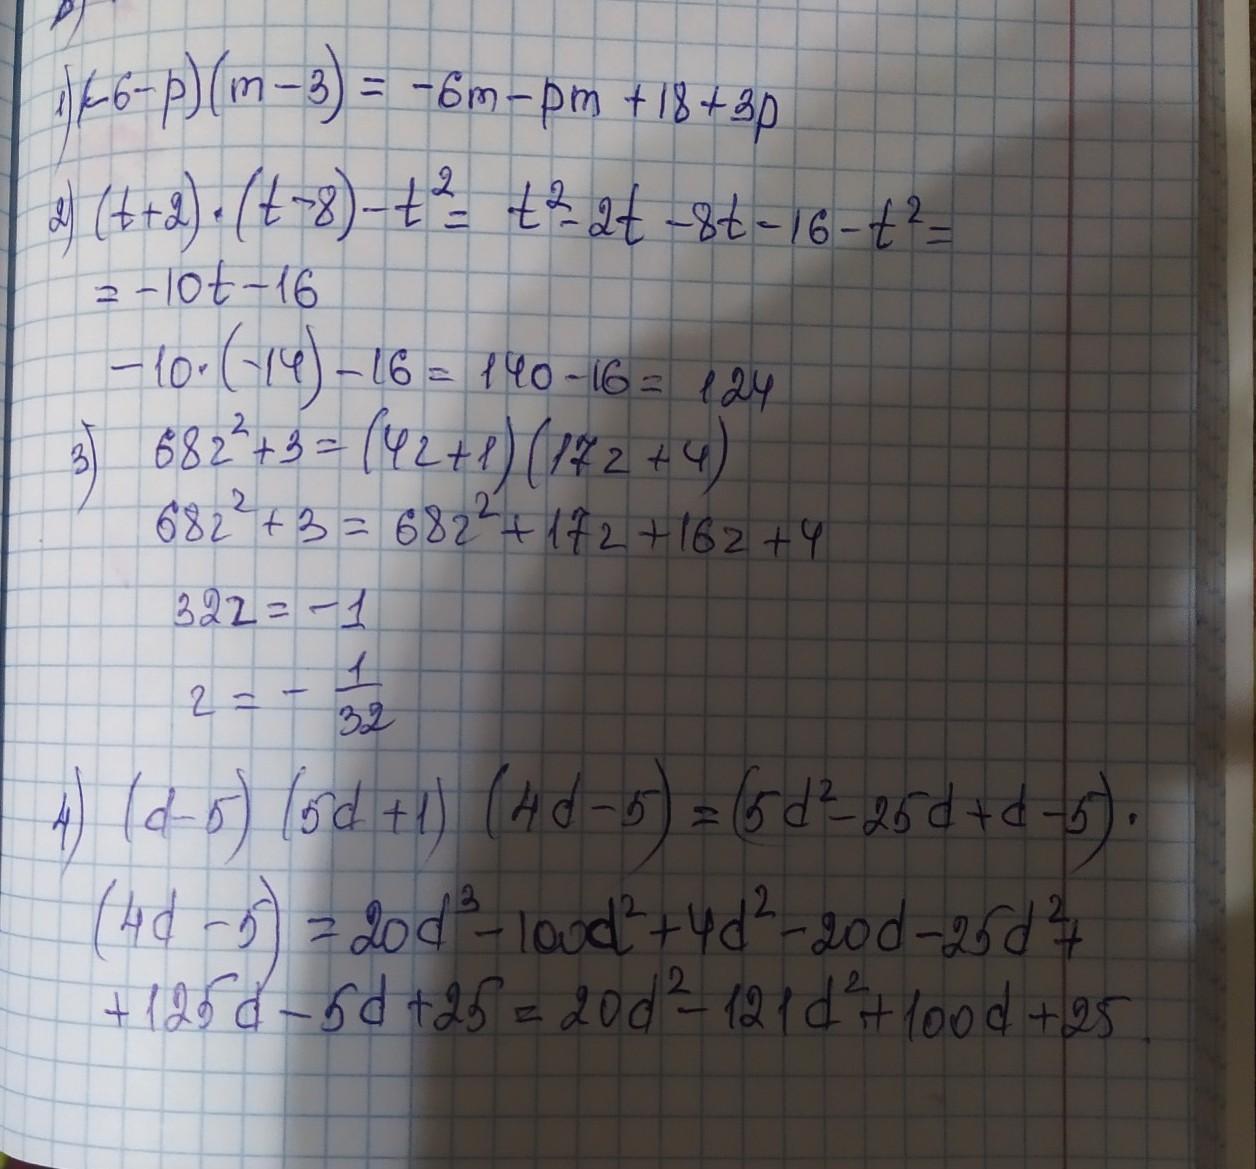 1) (-6-p)(m-3) = -6m-pm+18+3p
2) (t+2)·(t-8)-t² = t²-2t-8t-16-t² =
= -10t-16
-10·(-14)-16 = 140-16 = 124
3) 68z²+3 = (4z+1)(17z+4)
68z²+3 = 68z²+17z+16z+4
32z = -1
z = -1/32
4) (d-5)(5d+1)(4d-5) = (5d²-25d+d-5)·
(4d-5) = 20d³-100d²+4d²-20d-25d²+
+125d-5d+25 = 20d²-121d²+100d+25